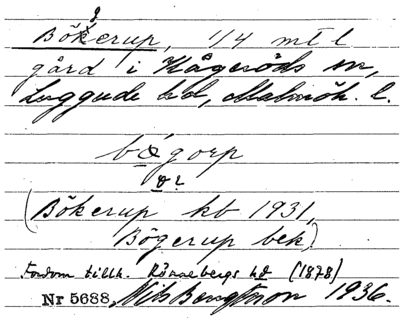 g
Bökerup, 1/4 mtl
gård i Kågeröds sn,
Luggude hd, Malmöh. l.
bögorp
ø?
(Bökerup kb 1931,
Bögerup bek)
fordom tillh. Rönnebergs hd (1878)
Nr 5688, Nils Bengtsson 1936.